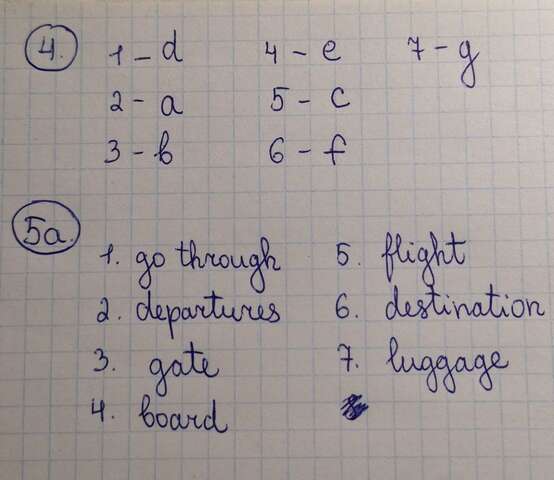 4. 1 – d 4 – e 7 – g
2 – a 5 – c
3 – b 6 – f
5a. 1. go through 5. flight
2. departures 6. destination
3. gate 7. luggage
4. board